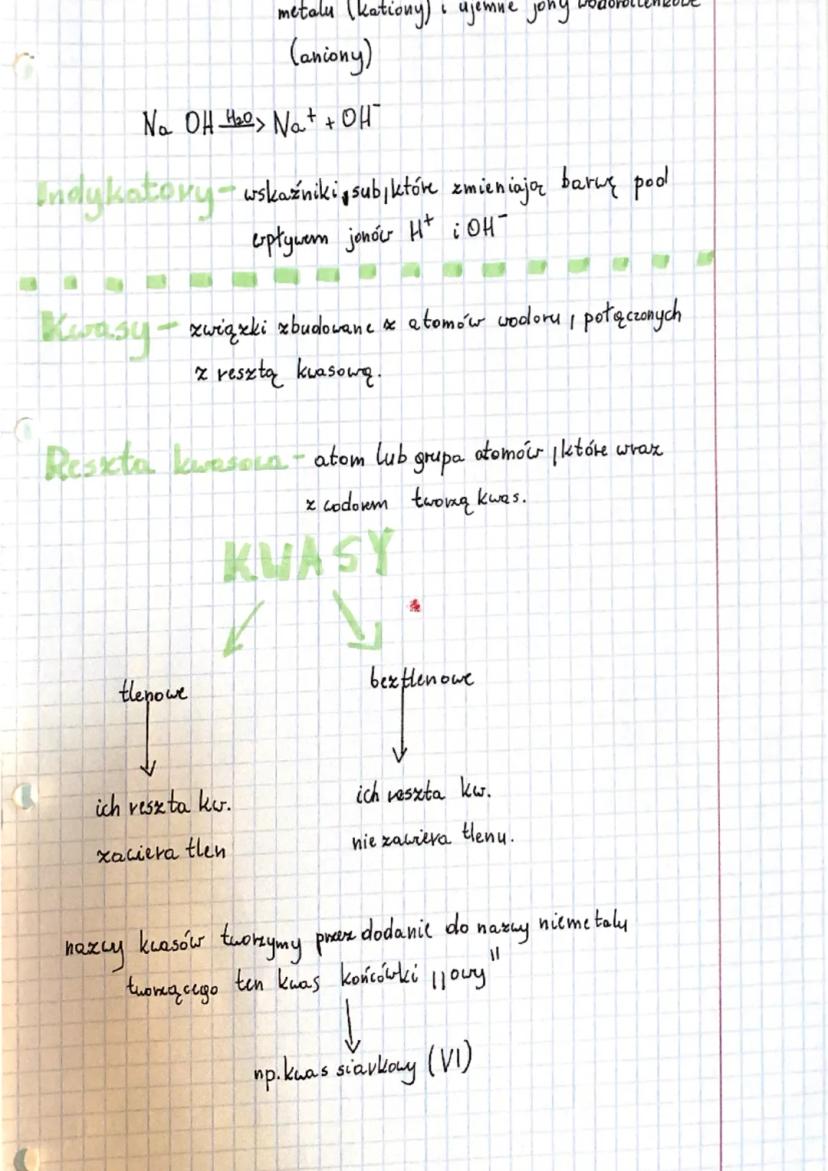 metalu (kationy) i ujemne jony wodorotlenkowe
(aniony)
Na OH H₂O> Na⁺ + OH⁻
Indykatory - wskaźniki, sub, które zmieniają barwę pod
wpływem jonów H⁺ i OH⁻
Kwasy - związki zbudowane z atomów wodoru, połączonych
z resztą kwasową.
Reszta kwasowa - atom lub grupa atomów, które wraz
z wodorem tworzą kwas.
KWASY
tlenowe
beztlenowe
ich reszta kw.
zawiera tlen
ich reszta kw.
nie zawiera tlenu.
nazwy kwasów tworzymy przez dodanie do nazwy niemetalu
tworzącego ten kwas końcówki ,,owy"
np. kwas siarkowy (VI)